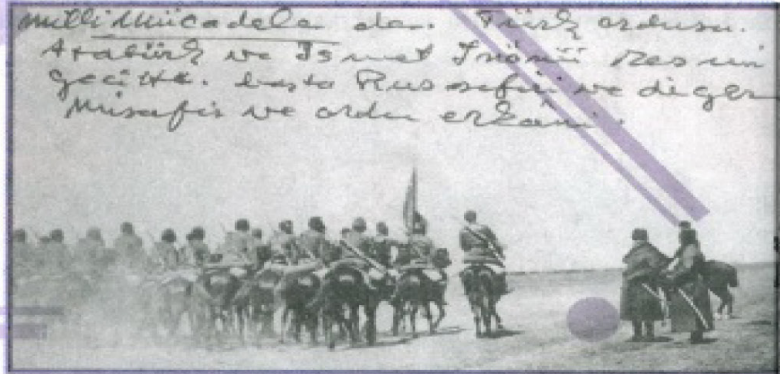 milli Mücadele den. Türk ordusu.
Atatürk ve İsmet İnönü Resmi
geçitte. başta Rus sefiri ve diger
Misafir ve ordu erkâni.